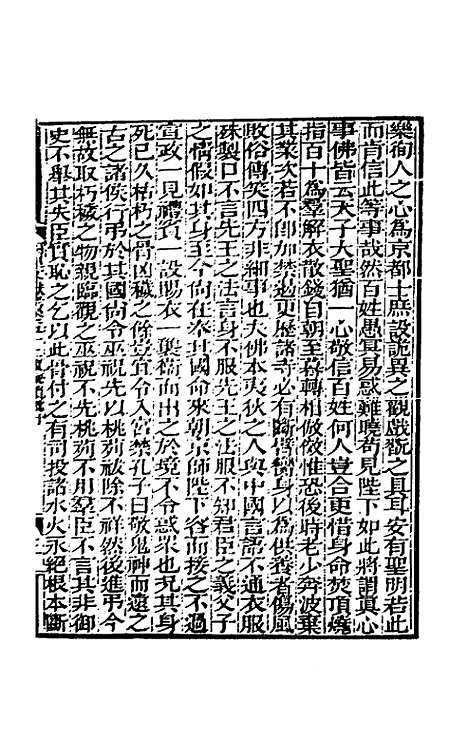 樂徇人之心爲京都士庶設詭異之觀戲翫之具耳安有聖明若此
而肯信此等事哉然百姓愚冥易惑難曉苟見陛下如此將謂眞心
事佛皆云天子大聖猶一心敬信百姓何人豈合更惜身命焚頂燒
指百十爲羣解衣散錢自朝至暮轉相倣傚惟恐後時老少奔波棄
其業次若不卽加禁遏更歷諸寺必有斷臂臠身以爲供養者傷風
敗俗傳笑四方非細事也夫佛本夷狄之人與中國言語不通衣服
殊製口不言先王之法言身不服先王之法服不知君臣之義父子
之情假如其身至今尙在奉其國命來朝京師陛下容而接之不過
宣政一見禮賓一設賜衣一襲衞而出之於境不令惑衆也況其身
死已久枯朽之骨凶穢之餘豈宜令入宮禁孔子曰敬鬼神而遠之
古之諸侯行弔於其國尙令巫祝先以桃茢祓除不祥然後進弔今
無故取朽穢之物親臨觀之巫祝不先桃茢不用羣臣不言其非御
史不舉其失臣實恥之乞以此骨付之有司投諸水火永絕根本斷